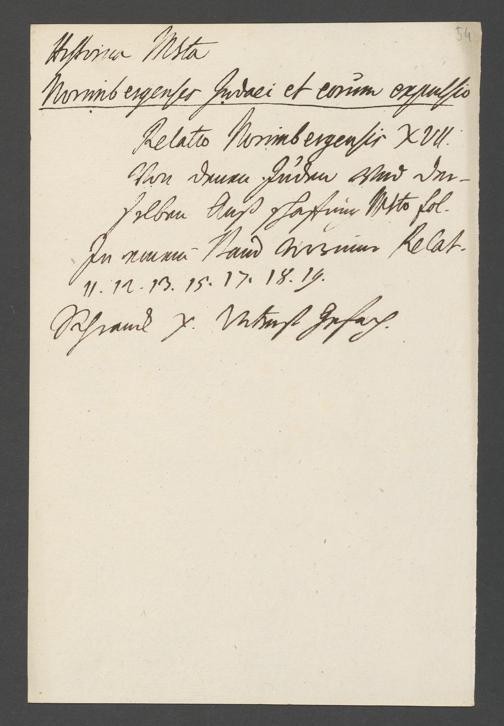 54
Historica Msta
Norimbergenses Judaei et eorum expulsio
Relatio Norimbergensis XVII.
Von denen Juden und der-
selben Auß schaffung Msto fol.
In einem Band Relat.
11. 12. 13. 15. 17. 18. 19.
Schranck X. Gefach.